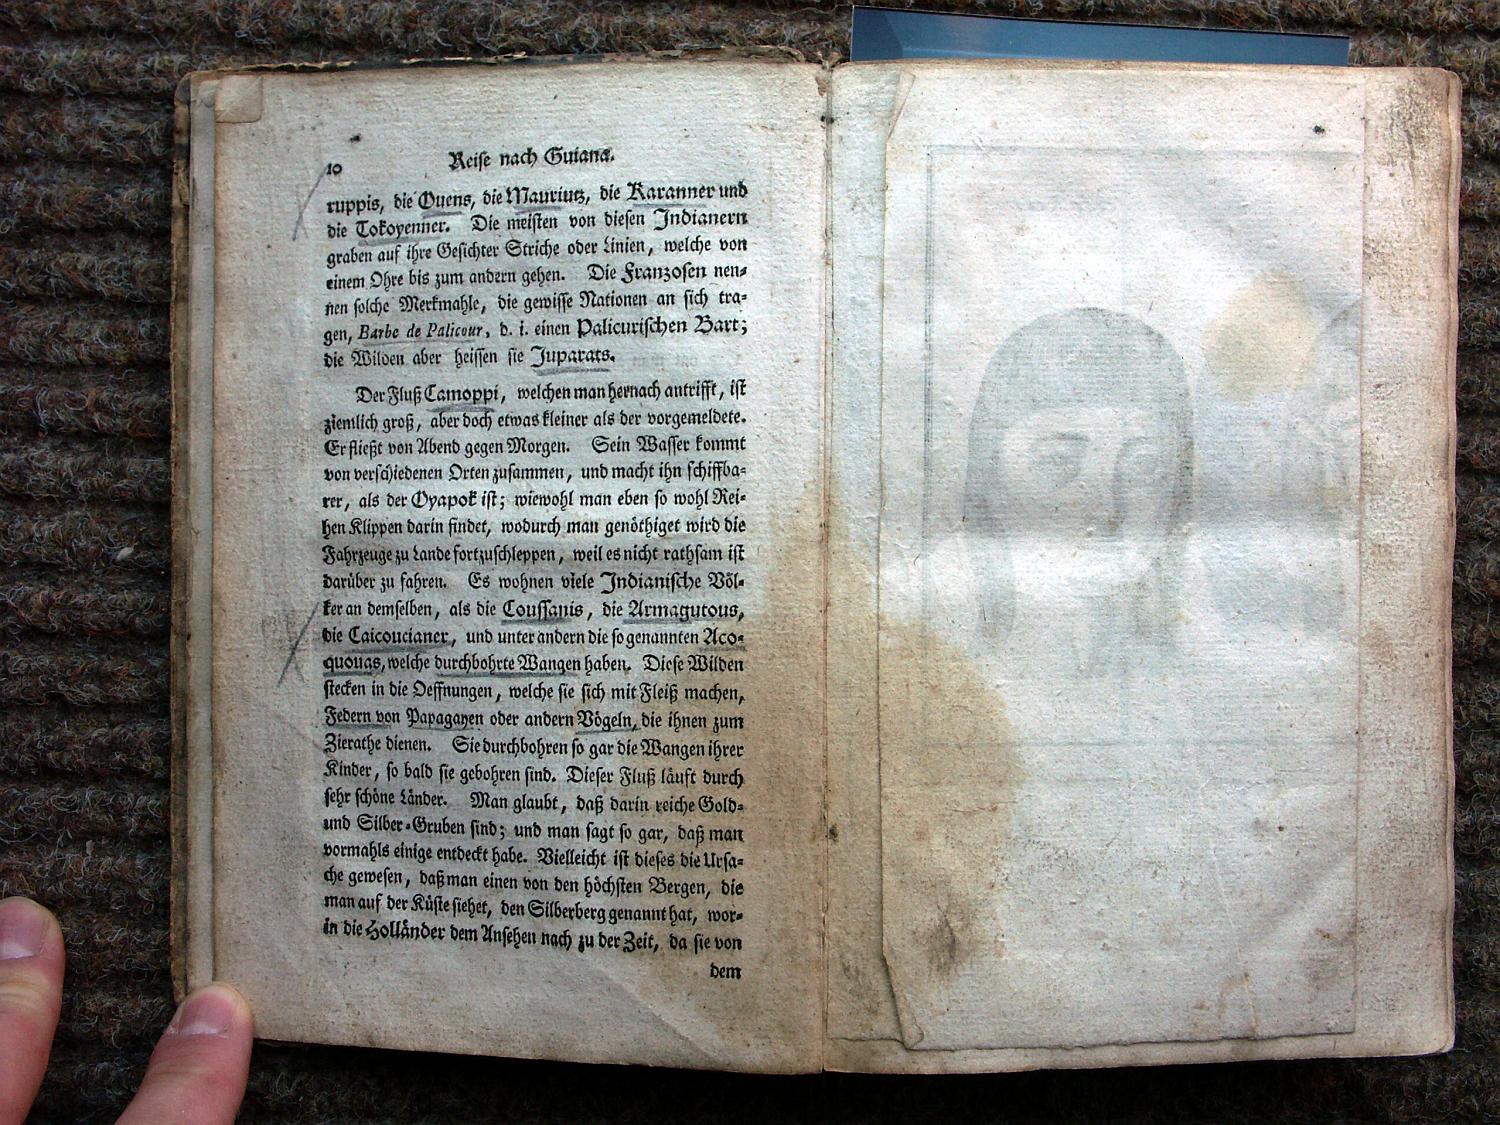 10 Reise nach Guiana.
ruppis, die Ouens, die Mauriutz, die Karanner und
die Tokoyenner. Die meisten von diesen Indianern
graben auf ihre Gesichter Striche oder Linien, welche von
einem Ohre bis zum andern gehen. Die Franzosen nen-
nen solche Merkmahle, die gewisse Nationen an sich tra-
gen, Barbe de Palicour, d. i. einen Palicurischen Bart;
die Wilden aber heissen sie Juparats.
Der Fluß Camoppi, welchen man hernach antrifft, ist
ziemlich groß, aber doch etwas kleiner als der vorgemeldete.
Er fließt von Abend gegen Morgen. Sein Wasser kommt
von verschiedenen Orten zusammen, und macht ihn schiffba-
rer, als der Oyapok ist; wiewohl man eben so wohl Rei-
hen Klippen darin findet, wodurch man genöthiget wird die
Fahrzeuge zu Lande fortzuschleppen, weil es nicht rathsam ist
darüber zu fahren. Es wohnen viele Indianische Völ-
ker an demselben, als die Coussanis, die Armagutous,
die Caicoucianer, und unter andern die so genannten Aco-
quouas, welche durchbohrte Wangen haben. Diese Wilden
stecken in die Oeffnungen, welche sie sich mit Fleiß machen,
Federn von Papagayen oder andern Vögeln, die ihnen zum
Zierathe dienen. Sie durchbohren so gar die Wangen ihrer
Kinder, so bald sie gebohren sind. Dieser Fluß läuft durch
sehr schöne Länder. Man glaubt, daß darin reiche Gold-
und Silber-Gruben sind; und man sagt so gar, daß man
vormahls einige entdeckt habe. Vielleicht ist dieses die Ursa-
che gewesen, daß man einen von den höchsten Bergen, die
man auf der Küste siehet, den Silberberg genannt hat, wor-
in die Holländer dem Ansehen nach zu der Zeit, da sie von
dem